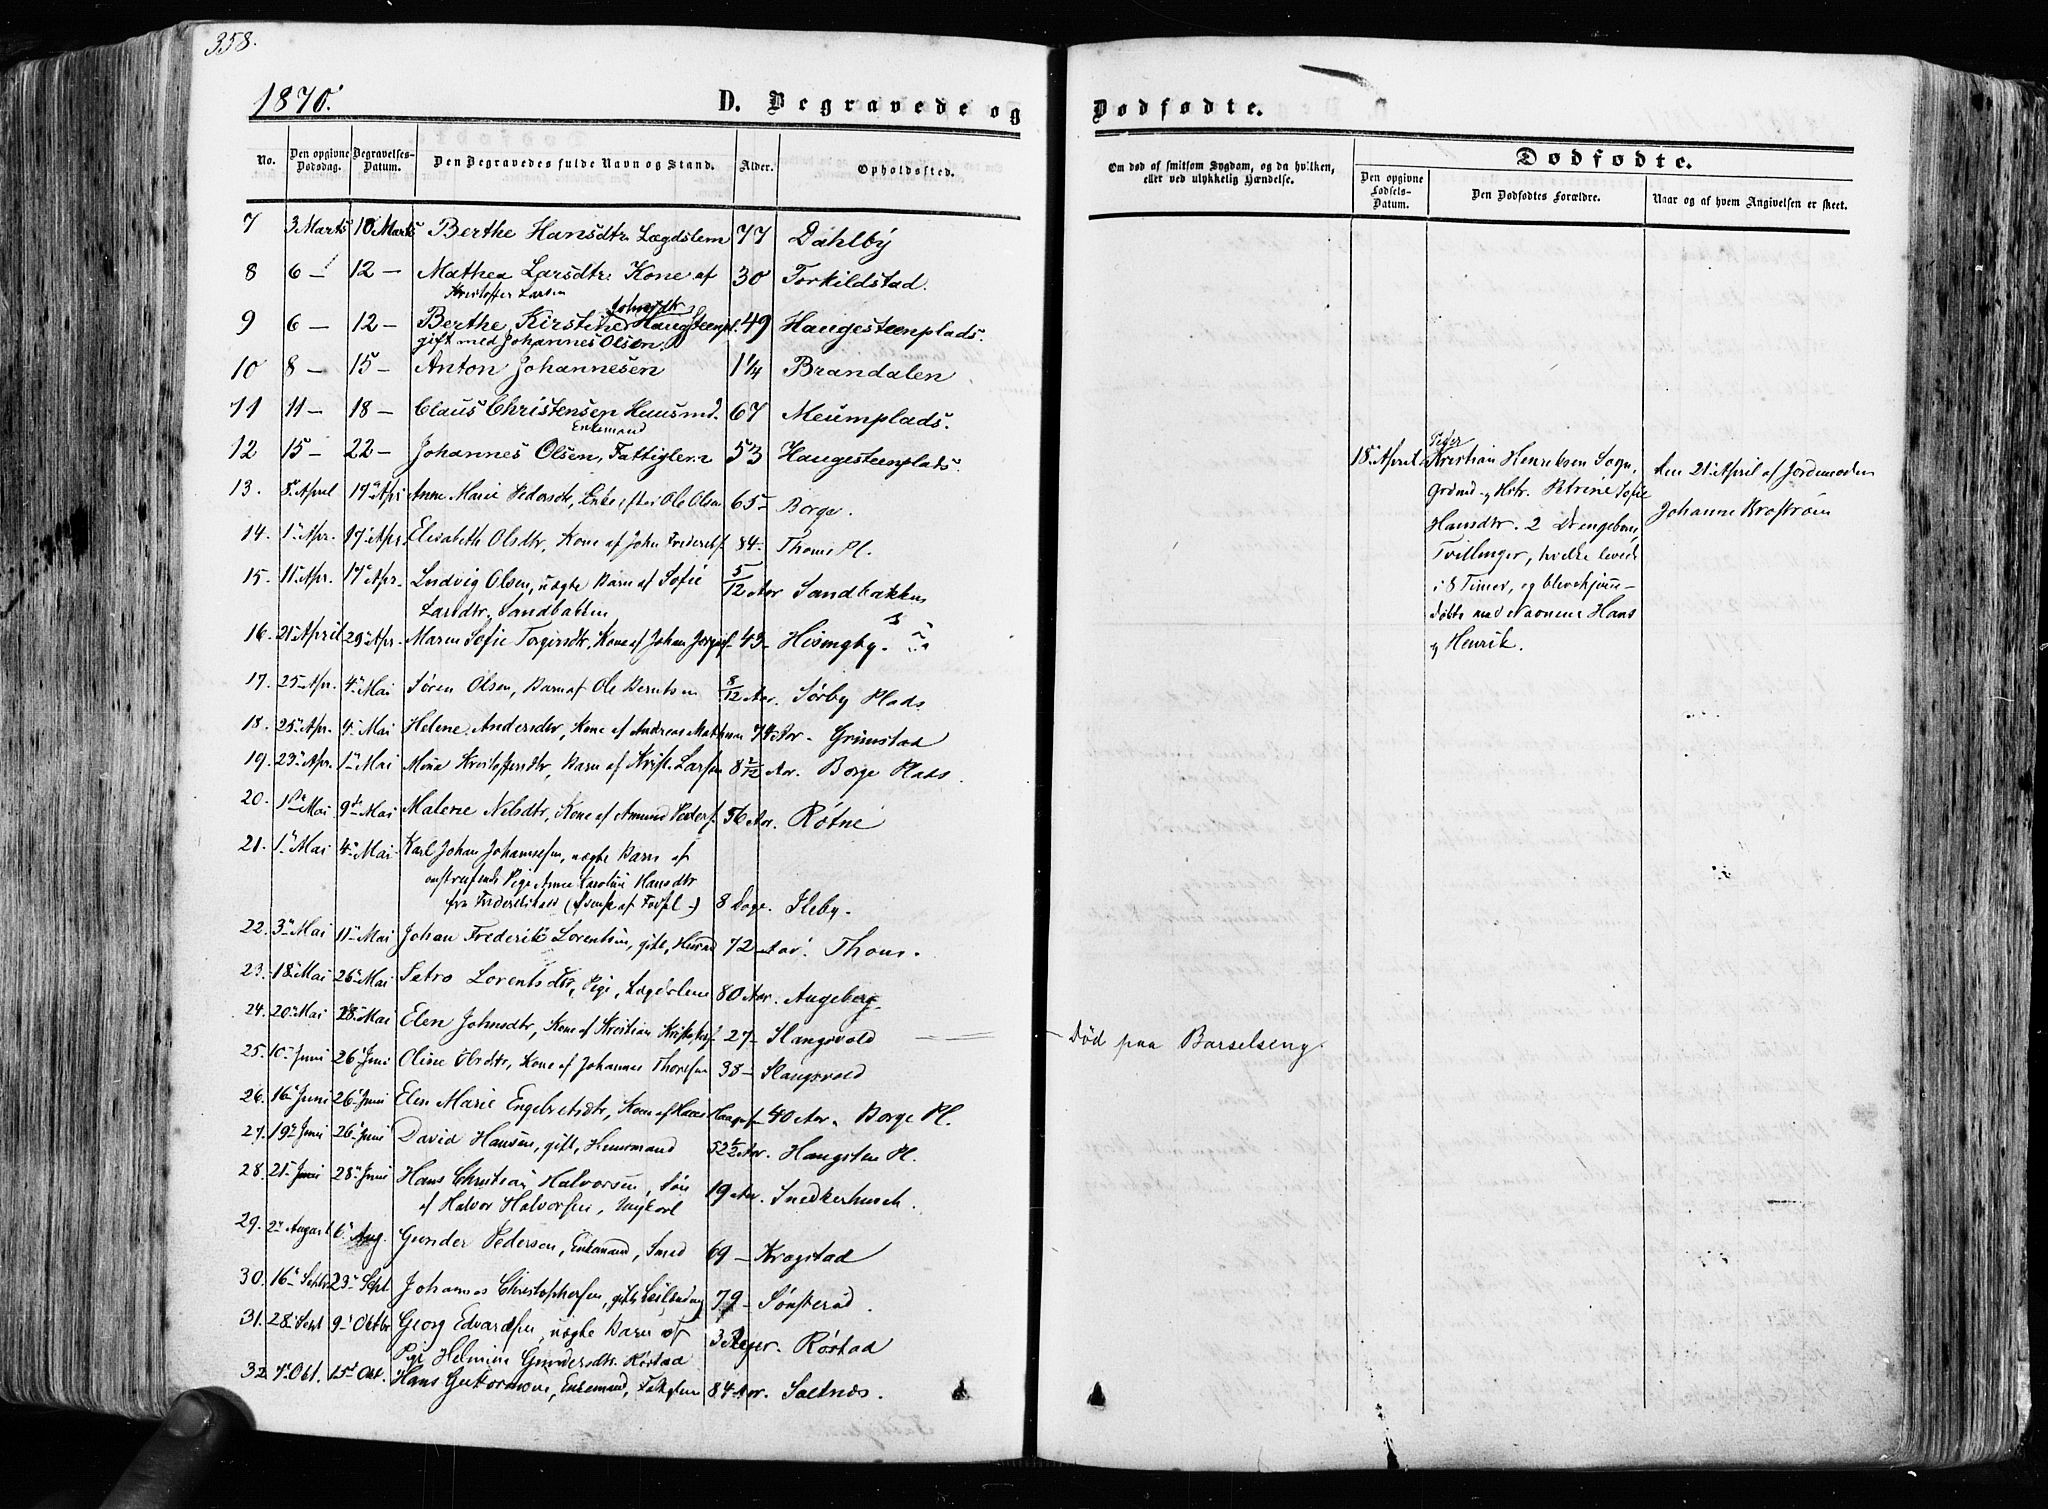 358.
1870.
D. Begravede og
Dødfødte.
No.
Den opgivne Dødsdag.
Begravelses-Datum.
Den Begravedes fulde Navn og Stand.
Alder.
Opholdssted.
Om død af smitsom Sygdom, og da hvilken, eller ved ulykkelig Hændelse.
Dødfødte.
Den opgivne Fødsels-Datum.
Den Dødfødtes Forældre.
Naar og af hvem Angivelsen er skeet.
7 3 Marts 10 Marts Berthe Hansdtr. Lægdslem 77 Dahlby
8 6 – 12 – Mathea Larsdtr. Kone af 30 Torkildstad.
Kristoffer Larsen
Johnsdtr
9 6 – 12 – Berthe Kirstine Haugsteenpl. 49 Haugesteenplads.
gift med Johannes Olsen
10 8 – 15 – Anton Johannesen 1 1/4 Brandalen
11 11 – 18 – Claus Christensen Huusmd. 67 Meumplads.
Enkemand
12 15 – 22 – Johannes Olsen, Fattiglem 53 Haugesteenplads.
13. 8 April 19 Apr Anne Marie Pedersdtr, Enke efter Ole Olsen 65 – Borge.
14. 1 Apr. 19 Apr. Elisabeth Olsdtr, Kone af John Frederiks. 84 – Thoms Pl.
15. 11 Apr. 19 Apr. Ludvig Olsen, uægte Barn af Sofie 5/12 Aar Sandbakken
Larsdtr, Sandbakken
16. 21 April 29 Apr. Maren Sofie Torgersdtr, Kone af Johan Jørgens. 43 – Hisingby.
17. 25 Apr. 4 Mai Søren Olsen, Barn af Ole Berntsen 8/12 Aar. Sørby Plads
18. 25 Apr. 4 Mai Helene Andersdtr, Kone af Andreas Mathesen 74 Aar – Grimstad
19. 23 Apr. 1 Mai Mina Kristoffersdtr, Barn af Krist. Larsen 8 2/12 Aar. Borge Plads.
20. 1ste Mai 9de Mai Malene Nilsdtr, Kone af Amund Peders. 56 Aar. Røtne
21. 1 Mai 4 Mai Karl Johan Johannesen, uægte Barn af
omstreifende Pige Anne Karoline Hansdtr
fra Frederikshald 8 Dage. Ileby.
22. 3 Mai 11 Mai Johan Frederik Lorentsen, gift, Husmd 72 – Aar. Thoms.
23. 18 Mai 26 Mai Petro Lorentsdtr, Pige, Lægdslem 80 Aar. Augeberg
24. 20 Mai 28 Mai Elen Johnsdtr, Kone af Kristian 27 – Slangsvold
Død paa Barselseng.
25. 10 Juni 26 Juni Oline Olsdtr, Kone af Johannes Thoresen 38 – Slangsvold
26. 16 Juni 26 Juni Elen Marie Engebretsdtr, Kone af Hans 40 Aar. Borge Pl.
27. 19 Juni 26 Juni David Hansen, gift, Huusmand 52 1/2 Aar. Haugsten Pl.
28. 21 Juni 28 Juni Hans Christian Halvorsen, Søn 19 Aar. Snedkerhusch.
af Halvor Halvorsen, Ungkarl
29. 2 August 6 Aug. Gunder Pedersen, Enkemand, Smed 69 – Kragstad
30. 16 Septbr 23 Sept Johannes Christophersen, gift 79 – Sønsterød.
31. 28 Sept 9 Oktbr Georg Edvardsen, uægte Barn af 3 Uger. Rørstad
Pige Helmine Gundersdtr. Rørstad
32 7 Okt. 15 Okt. Hans Guttormsen, Enkemand, Fattiglem 84 Aar. Saltnes.
18 April
Peter
Kristian Henriksen Sogn,
Grdmd og Hstr. Petrine Sofie
Hansdtr. 2 Drengebørn,
Tvillinger, hvilke levede
i 8 Timer, og blev hjemme-
døbte med Navnene Hans
og Henrik.
den 21 April af Jordemoder
Johanne Brostrøm